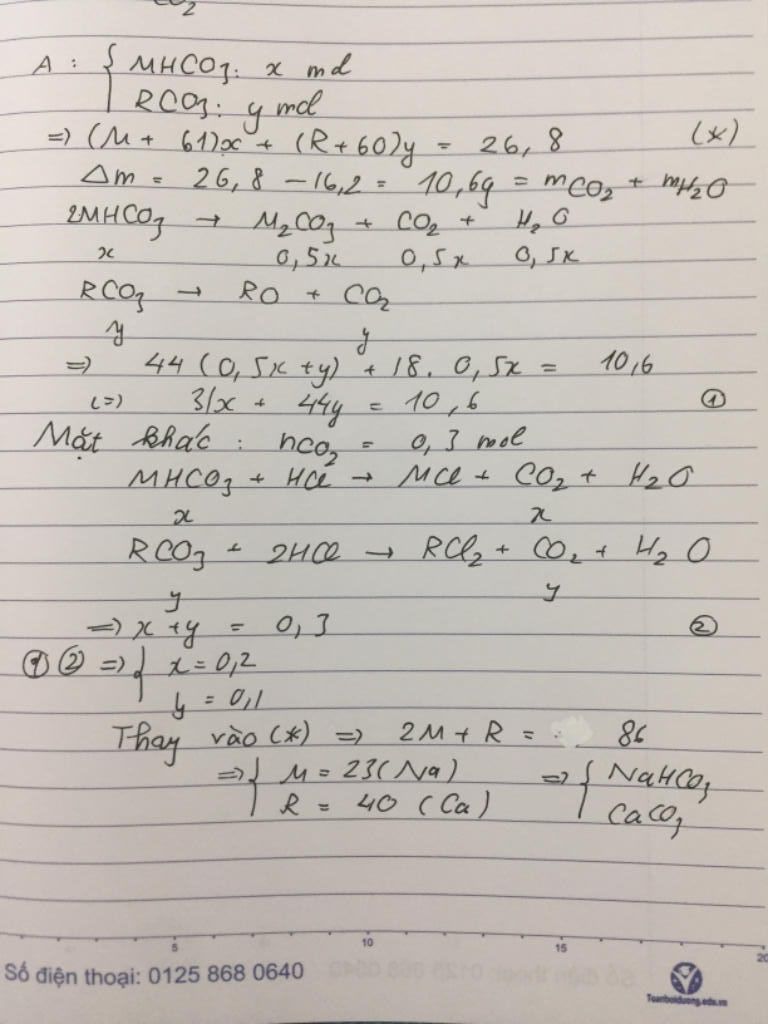 CO2
A : { MHCO3: x mol
RCO3: y mol
=> (M + 61)x + (R+60)y = 26,8 (*)
Δm = 26,8 - 16,2 = 10,6g = mCO2 + mH2O
2MHCO3 → M2CO3 + CO2 + H2O
x 0,5x 0,5x 0,5x
RCO3 → RO + CO2
y y
=> 44 (0,5x+y) + 18. 0,5x = 10,6
<=> 31x + 44y = 10,6 ①
Mặt khác : nCO2 = 0,3 mol
MHCO3 + HCl → MCl + CO2 + H2O
x x
RCO3 + 2HCl → RCl2 + CO2 + H2O
y y
=> x+y = 0,3 ②
① ② => { x = 0,2
y = 0,1
Thay vào (*) => 2M + R = 86
=> { M = 23 (Na) => { NaHCO3
R = 40 (Ca) CaCO3
5 10 15 20
Số điện thoại: 0125 868 0640
Toanboiduong.edu.vn